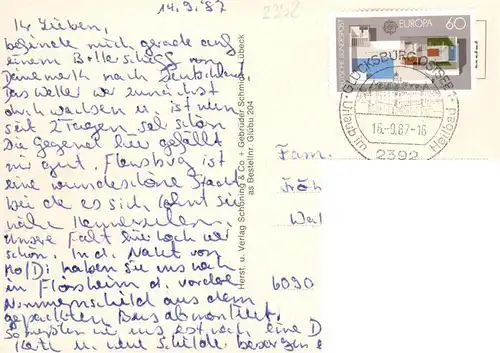 14.9.87
2392
Ihr Lieben,
befinde mich gerade auf
einem Butterschiff von
Dänemark nach Deutschland.
Das Wetter war zunächst
durchwachsen u. ist nun
seit 2 Tagen sehr schön
Die Gegend hier gefällt
mir gut. Flensburg ist
eine wunderschöne Stadt
bei der es sich lohnt sie
näher kennenzulernen.
Unsere Fahrt hier hoch war
schön. In d. Nacht von
Mo/Di haben sie uns noch
in Flörsheim d. vordere
Nummernschild aus dem
gepackten Bus abmontiert.
So mußten wir uns erst noch eine D
Karte u. neue Schilder besorgen
Herst. u. Verlag Schöning & Co + Gebrüder Schmidt, Lübeck
as Bestellnr. Glübu 204
DEUTSCHE BUNDESPOST
EUROPA
60
GLÜCKSBURG, OSTSEE
Urlaub im Heilbad
16.-9.87-16
2392
Fam.
Fröh
Wal
6090